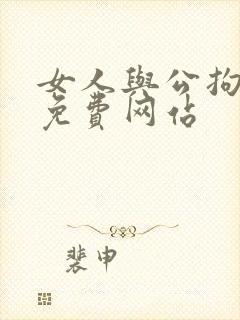 女人與公拘
免費网估
裴申